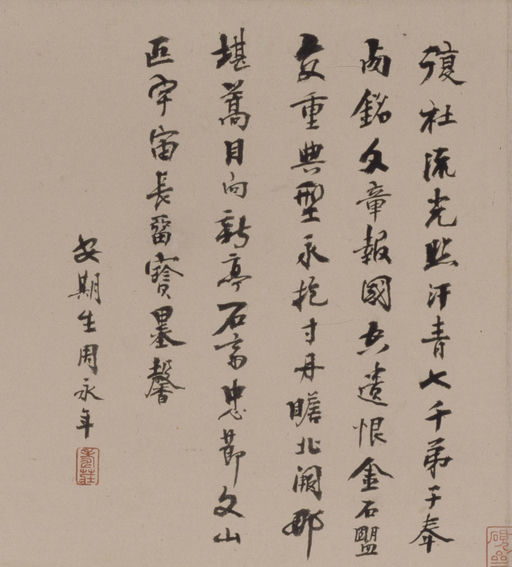 復社流光照汗青七千弟子奉
卣銘文章報國遺恨金石盟
交重典型永抱寸丹瞻北闕那
堪蒿目向新亭石齋忠節文山
匹宇宙長留寶墨馨
安期生周永年